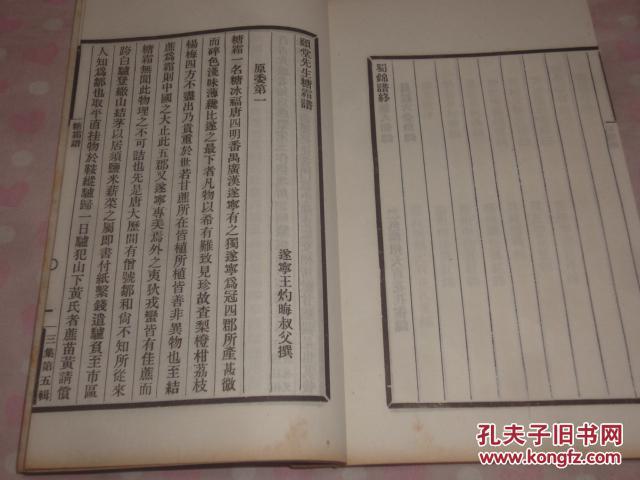 蜀錦譜終
頤堂先生糖霜譜
遂寧王灼晦叔父撰
原委第一
糖霜一名糖冰福唐四明番禺廣漢遂寧有之獨遂寧爲冠四郡所產甚微
而碎色淺味薄纔比遂之最下者凡物以希有難致見珍故查梨橙柑荔枝
楊梅四方不盡出乃貴重於世若甘蔗所在皆植所植皆善非異物也至結
蔗爲霜則中國之大止此五郡又遂寧專美焉外之夷狄戎蠻皆有佳蔗而
糖霜無聞此物理之不可詰也先是唐大歷間有僧號鄒和尚不知所從來
跨白驢登繖山結茅以居須鹽米薪菜之屬即書付紙繫錢遣驢負至市區
人知爲鄒也取平直挂物於鞍縱驢歸一日驢犯山下黃氏者蔗苗黃請償
糖霜譜
三集第五輯
孔夫子旧书网
www.kongfz.com